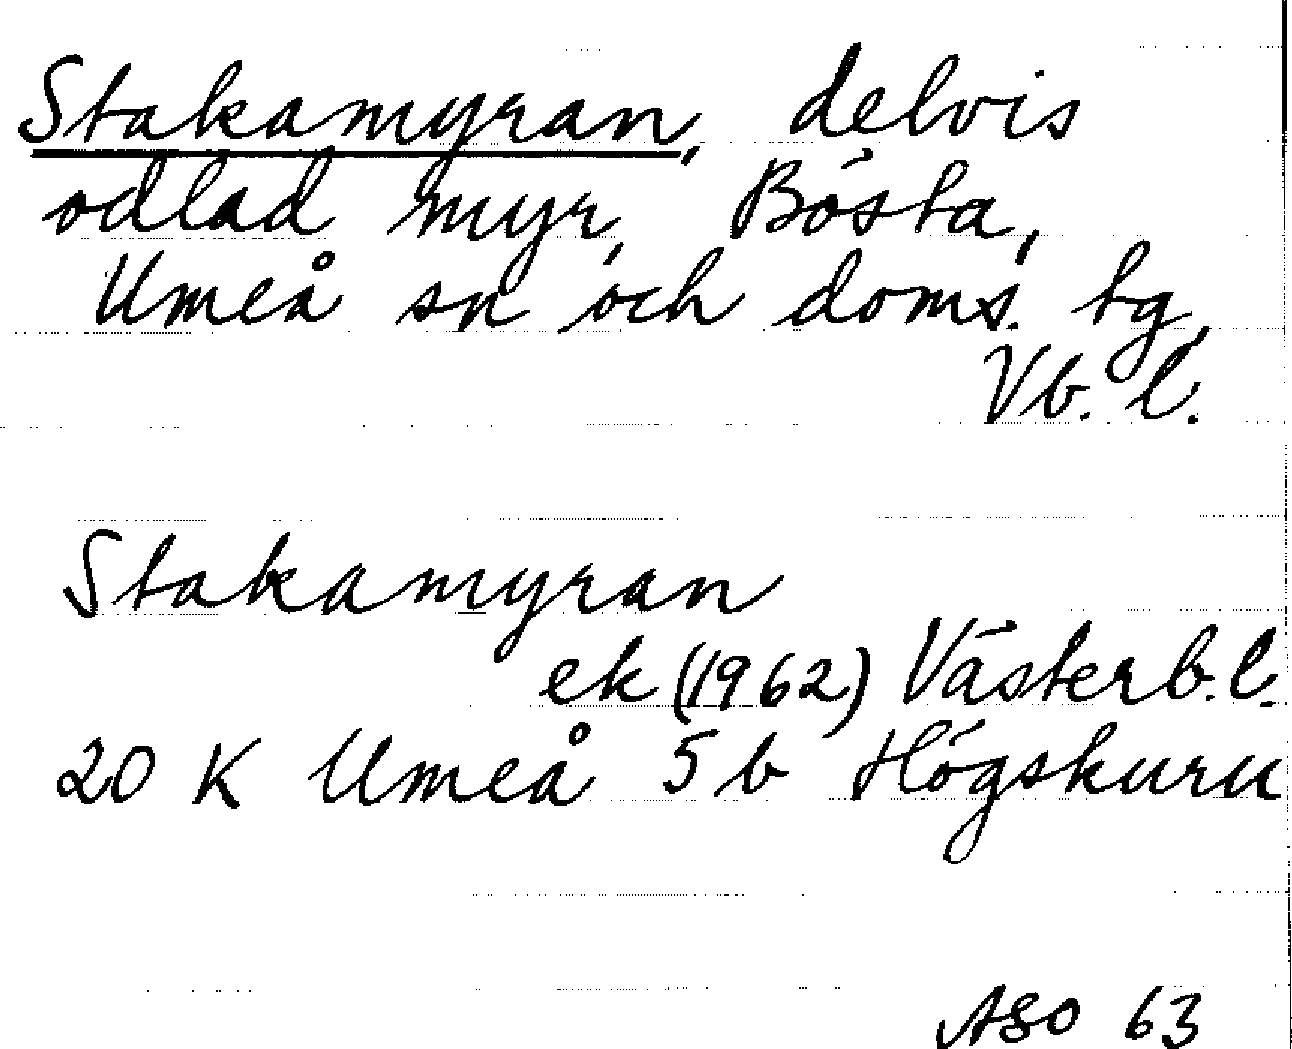 Stakamyran, delvis
odlad myr, Bösta,
Umeå sn och doms. tg,
Vb. l.
Stakamyran
ek (1962) Västerb. l.
20 K Umeå 5 b Högskuru
ASO 63